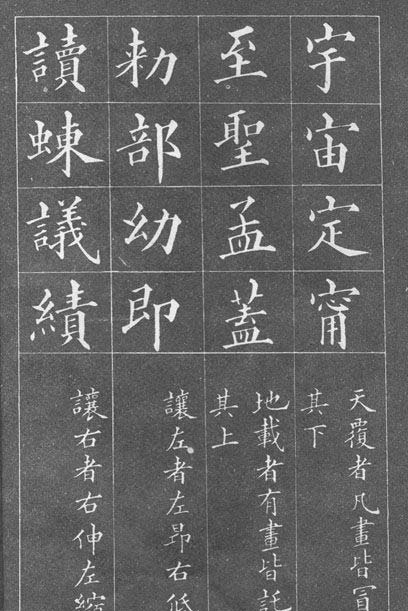 宇宙定甯
天覆者凡畫皆冒
其下
至聖孟蓋
地載者有畫皆託
其上
勅部幼即
讓左者左昂右低
讀蝀議績
讓右者右伸左縮